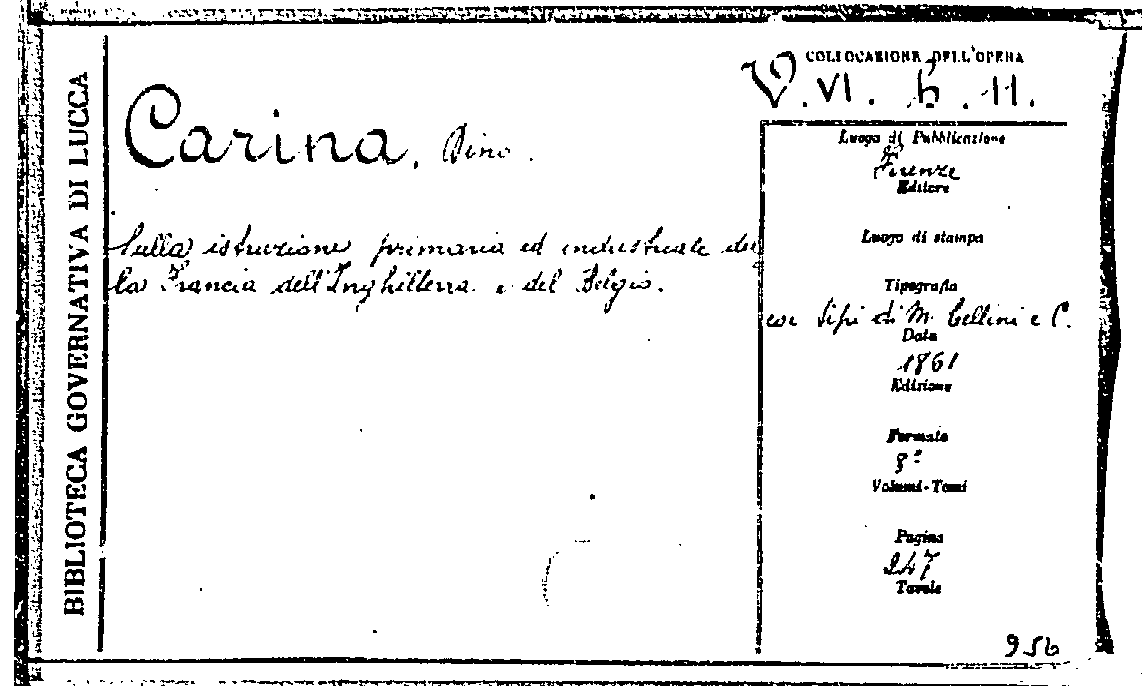 BIBLIOTECA GOVERNATIVA DI LUCCA
COLLOCAZIONE DELL'OPERA
V. VI. b. 11.
Carina, Dino.
Sulla istruzione primaria ed industriale del
la Francia dell'Inghilterra e del Belgio.
Luogo di Pubblicazione
Firenze
Editore
Luogo di stampa
Tipografia
coi tipi di M. Cellini e C.
Data
1861
Edizione
Formato
8°
Volumi-Tomi
Pagine
247
Tavole
956